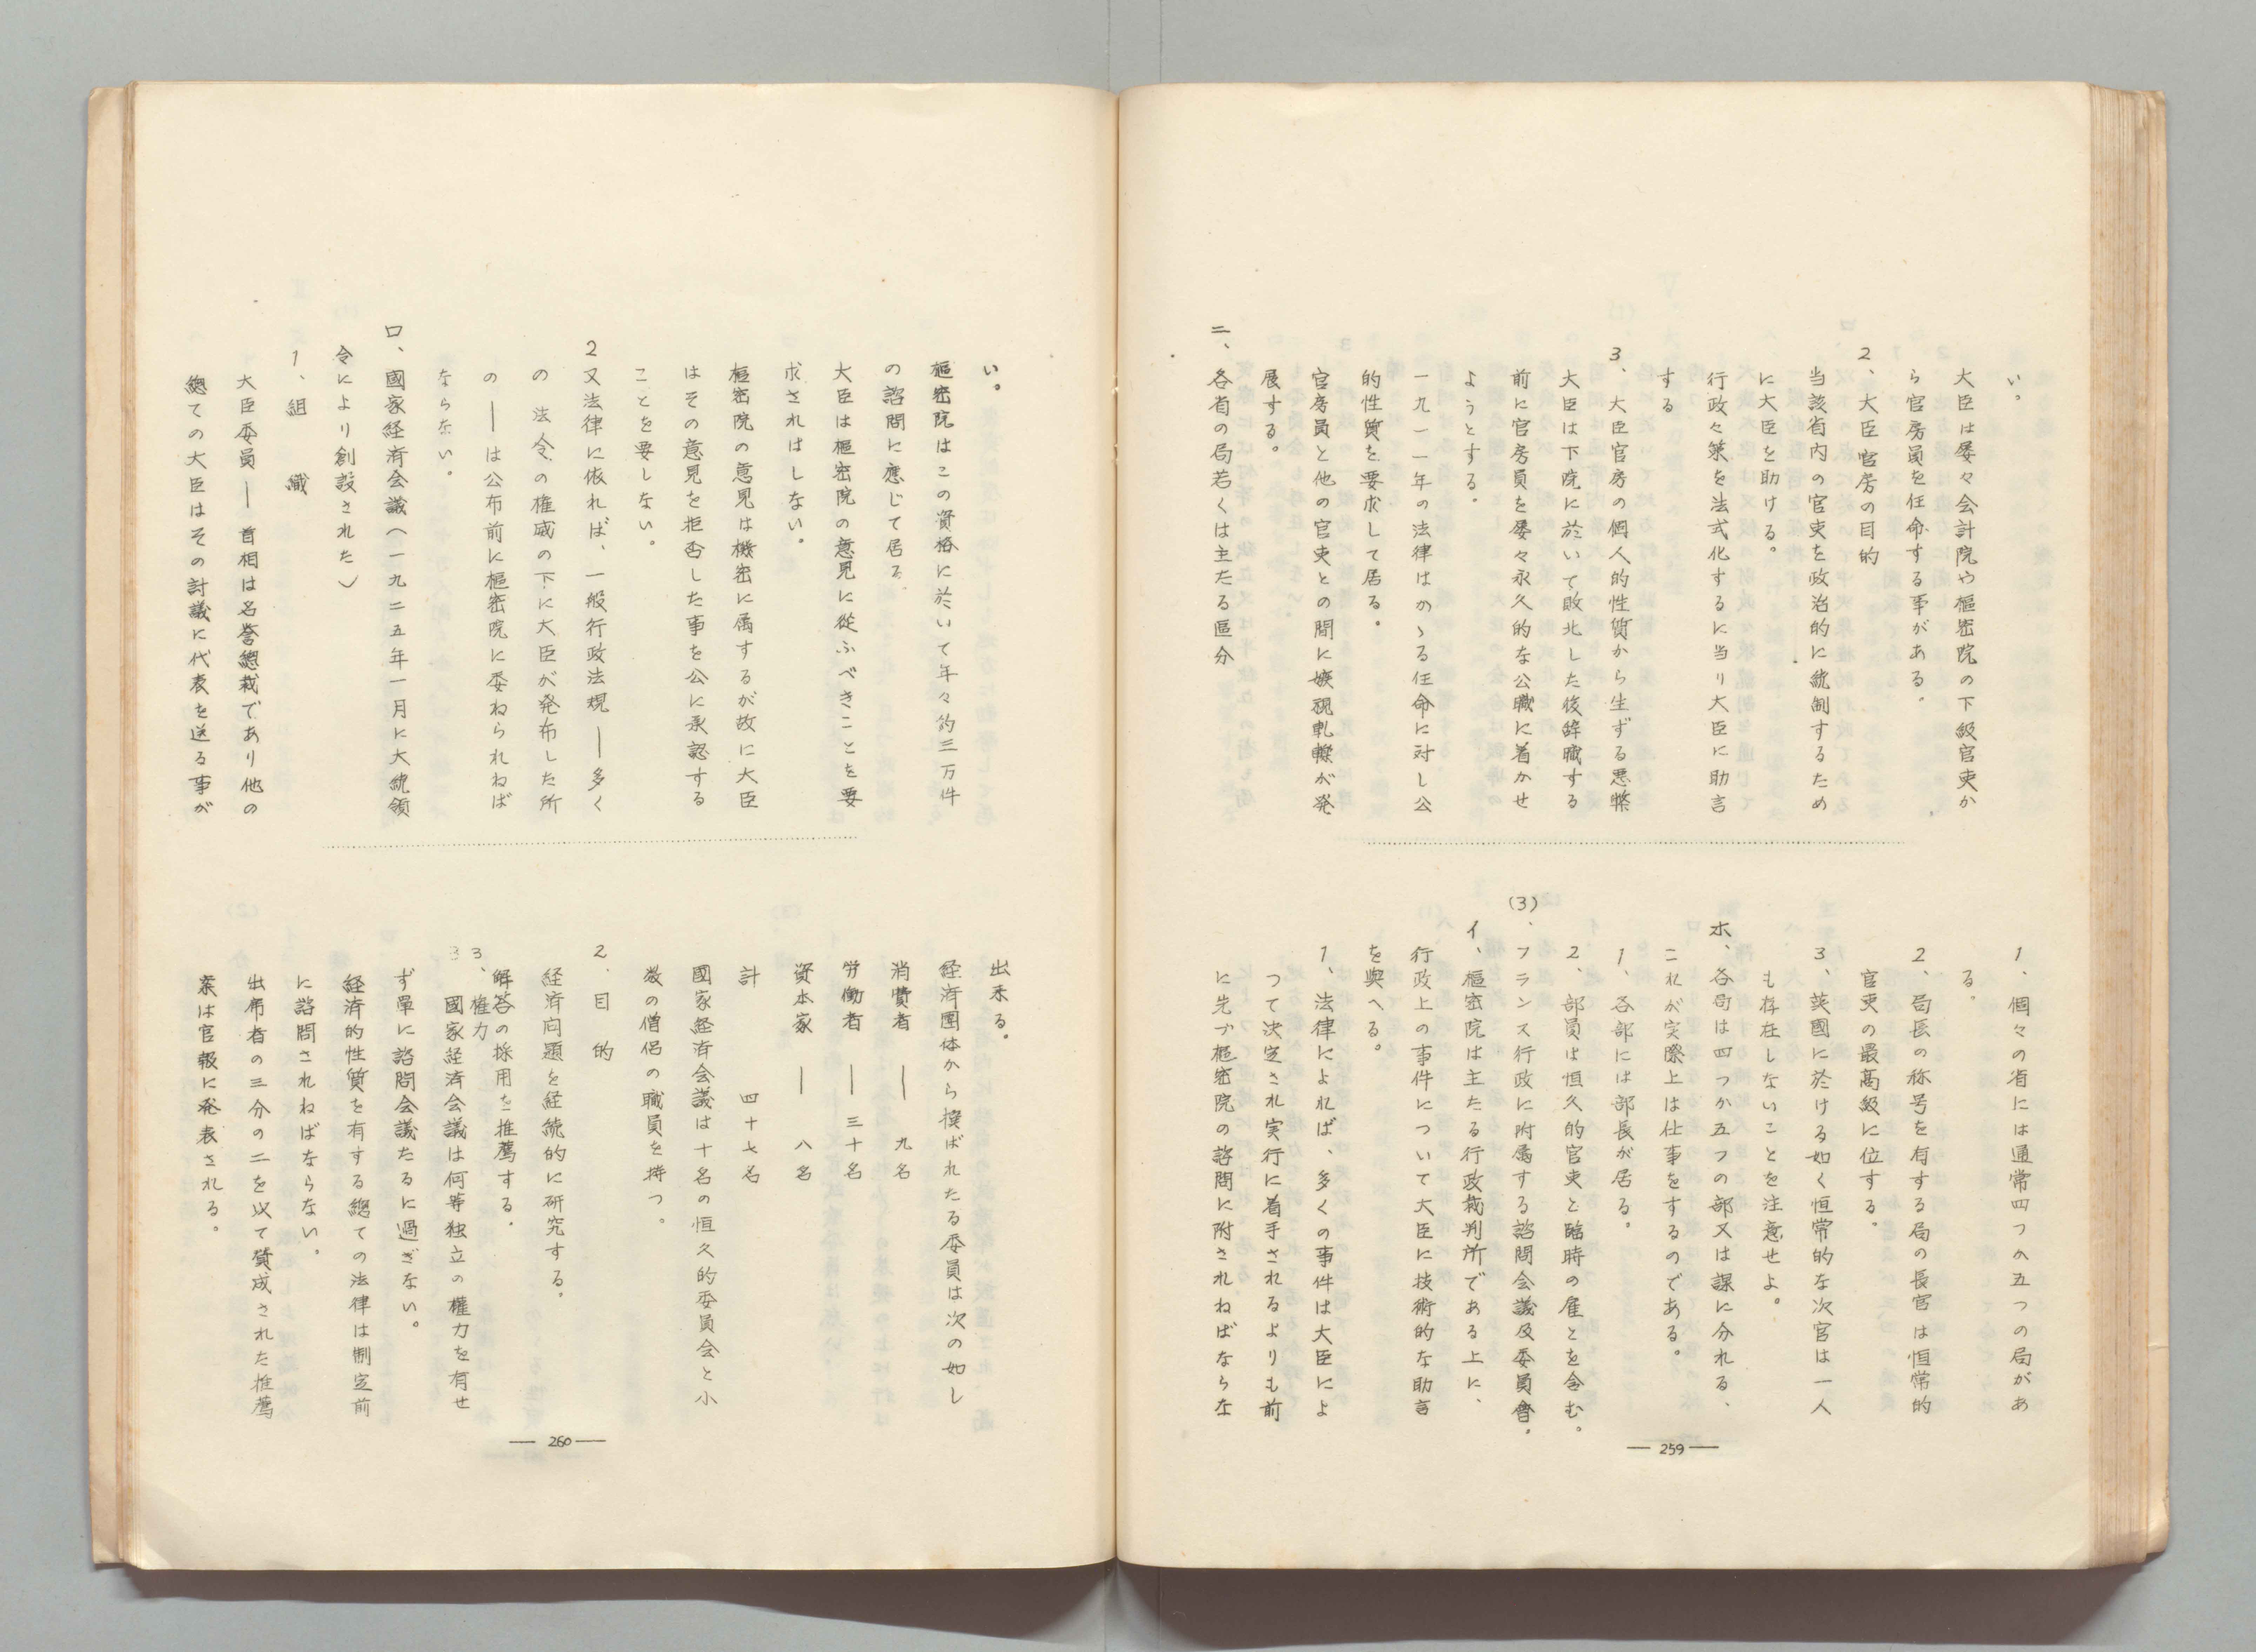 い。
大臣は屡々会計院や樞密院の下級官吏か
ら官房員を任命する事がある。
2、大臣官房の目的
当該省内の官吏を政治的に統制するため
に大臣を助ける。
行政々策を法式化するに当り大臣に助言
する
3、大臣官房の個人的性質から生ずる悪弊
大臣は下院に於いて敗北した後辞職する
前に官房員を屡々永久的な公職に着かせ
ようとする。
一九一一年の法律はかゝる任命に対し公
的性質を要求して居る。
官房員と他の官吏との間に嫉視軋轢が発
展する。
二、各省の局若くは主たる區分
1、個々の省には通常四つ乃五つの局があ
る。
2、局長の称号を有する局の長官は恒常的
官吏の最高級に位する。
3、英國に於ける如く恒常的な次官は一人
も存在しないことを注意せよ。
ホ、各局は四つか五つの部又は課に分れる、
これが実際上は仕事をするのである。
1、各部には部長が居る。
2、部員は恒久的官吏と臨時の雇とを含む。
(3)、フランス行政に附属する諮問会議及委員會。
イ、樞密院は主たる行政裁判所である上に、
行政上の事件について大臣に技術的な助言
を與へる。
1、法律によれば、多くの事件は大臣によ
つて決定され実行に着手されるよりも前
に先づ樞密院の諮問に附されねばならな
— 259 —
い。
樞密院はこの資格に於いて年々約三万件
の諮問に應じて居る
大臣は樞密院の意見に從ふべきことを要
求されはしない。
樞密院の意見は機密に属するが故に大臣
はその意見を拒否した事を公に承認する
ことを要しない。
2又法律に依れば、一般行政法規—多く
の法令の権威の下に大臣が発布した所
の—は公布前に樞密院に委ねられねば
ならない。
ロ、國家経済会議(一九二五年一月に大統領
令により創設された)
1、組織
大臣委員—首相は名誉總裁であり他の
總ての大臣はその討議に代表を送る事が
出来る。
経済團体から撰ばれたる委員は次の如し
消費者 — 九名
労働者 — 三十名
資本家 — 八名
計 四十七名
國家経済会議は十名の恒久的委員会と小
数の僧侶の職員を持つ。
2、目的
経済问題を経統的に研究する。
解答の採用を推薦する。
3、権力
國家経済会議は何等独立の権力を有せ
ず單に諮問会議たるに過ぎない。
経済的性質を有する總ての法律は制定前
に諮問されねばならない。
出席者の三分の二を以て賛成された推薦
案は官報に発表される。
— 260 —